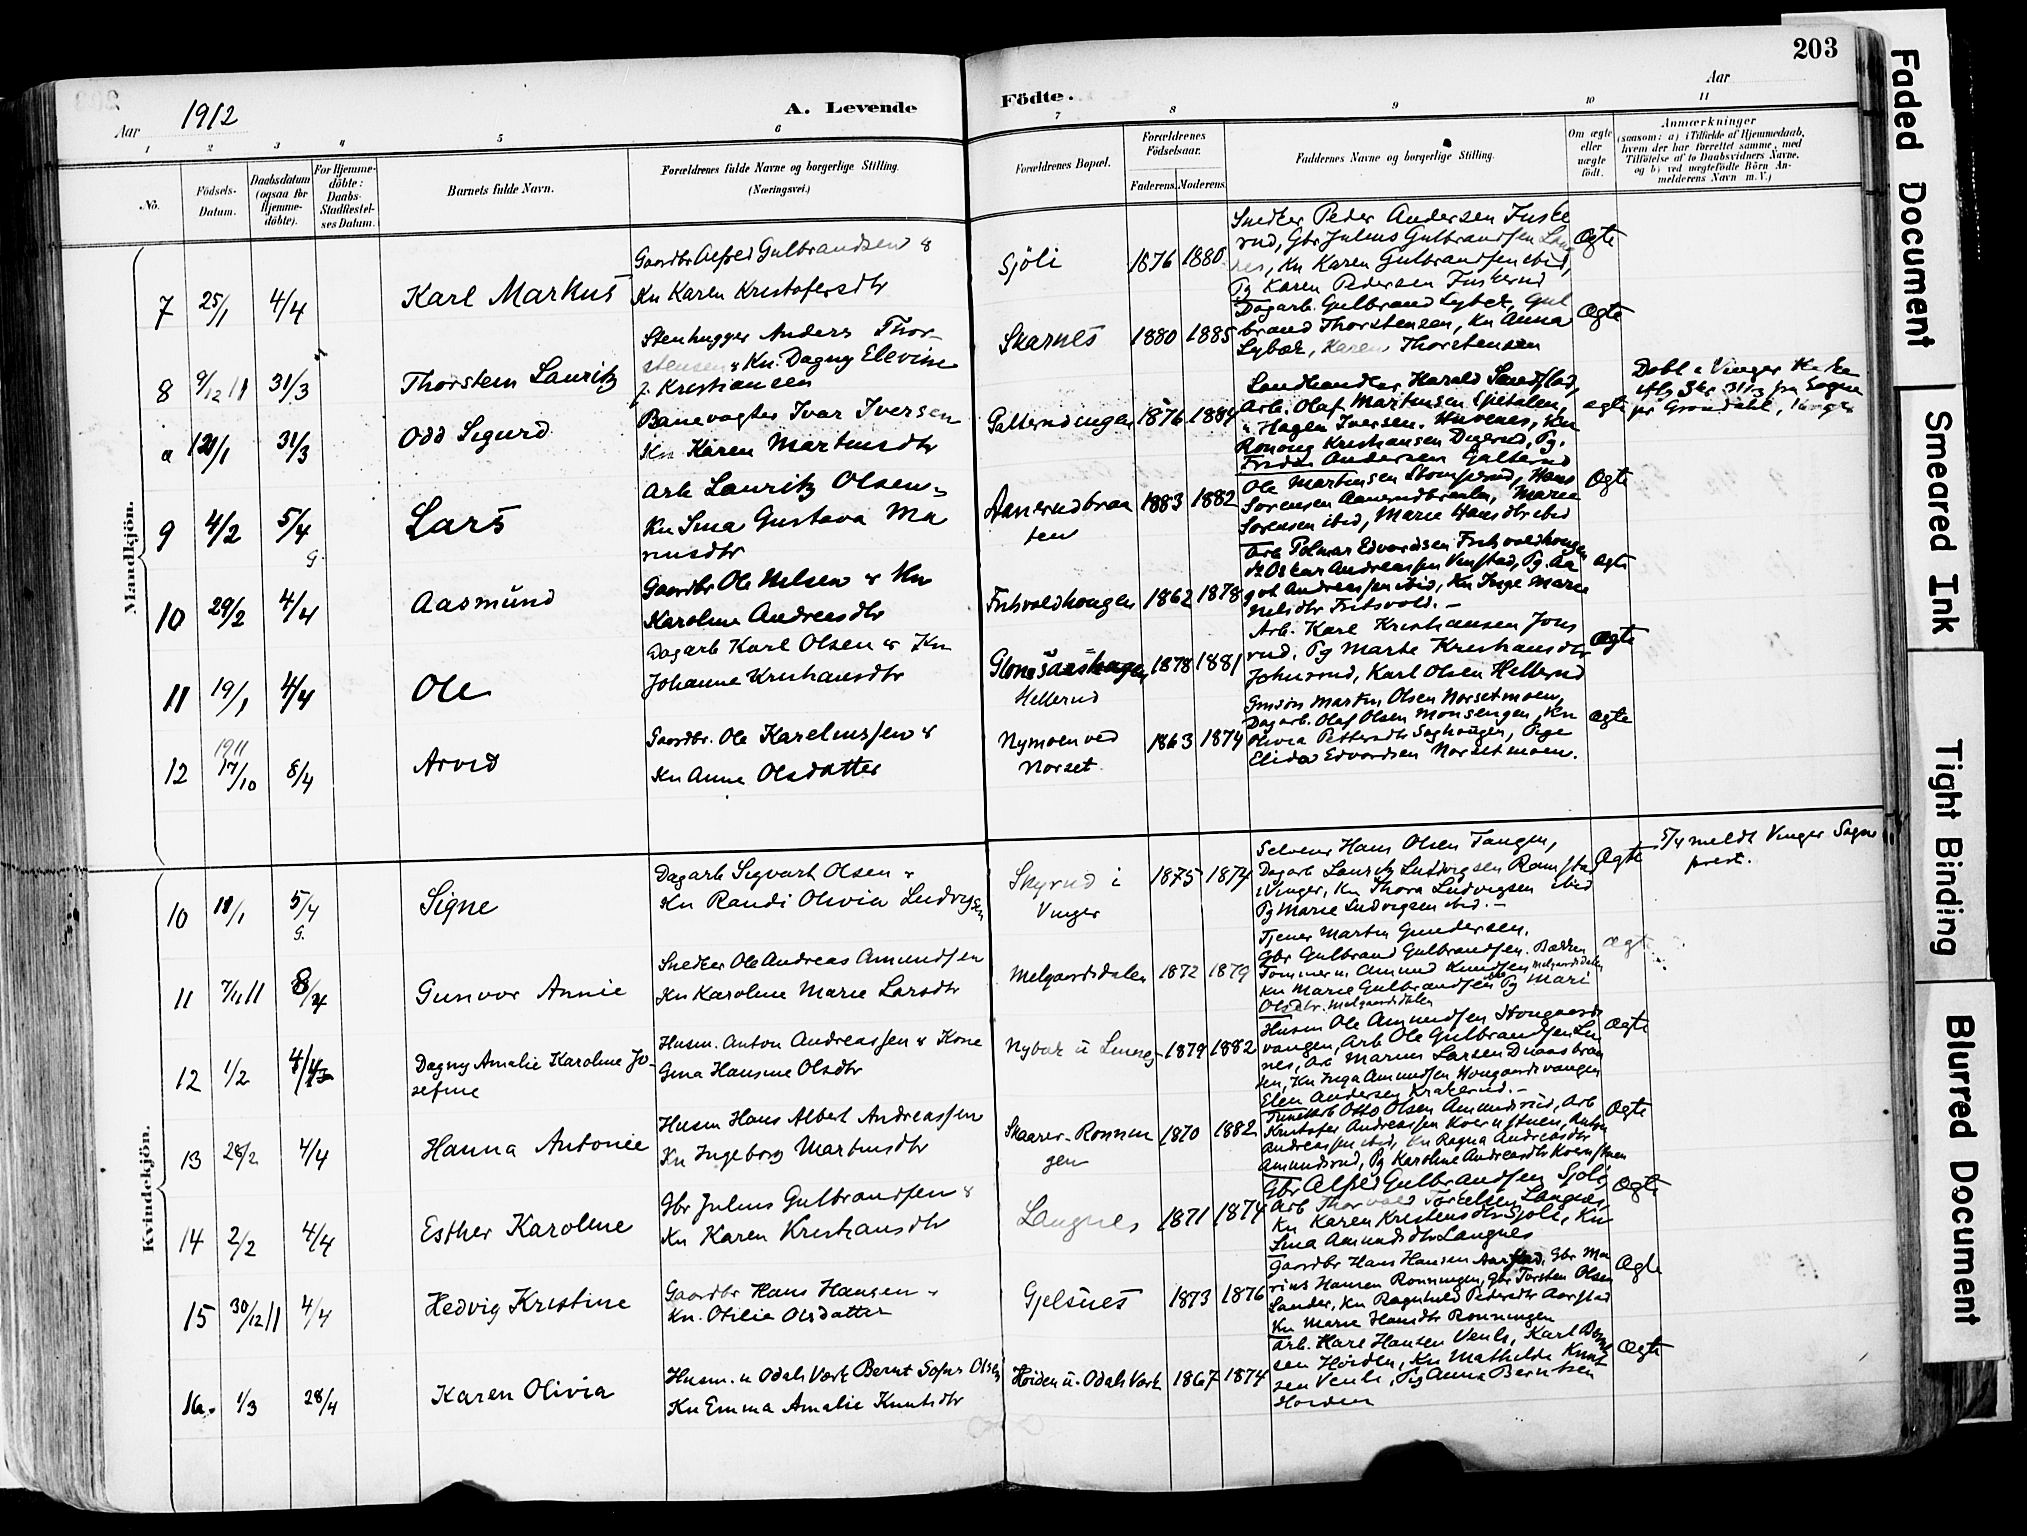 203
Aar 1912
A. Levende
Födte.
Aar
1 2 3 4 5 6 7 8 9 10 11
No.
Födsels-
Datum.
Daabsdatum
(ogsaa for
Hjemme-
döbte).
For Hjemme-
döbte:
Daabs-
Stadfæstel-
ses Datum.
Barnets fulde Navn.
Forældrenes fulde Navne og borgerlige Stilling.
(Næringsvei.)
Forældrenes Bopæl.
Forældrenes
Födselsaar.
Faderens. Moderens.
Faddernes Navne og borgerlige Stilling.
Om ægte
eller
uægte
født.
Anmærkninger
(saasom: a) i Tilfælde af Hjemmedaab,
hvem der har forrettet samme, med
Tilföielse af to Daabsvidners Navne,
og b) ved uægtefödte Börn An-
melderens Navn m. V.)
Mandkjön.
7 25/1 4/4 Karl Markus
Gaardbr Alfred Gulbrandsen &
Kn Karen Kristofersdtr
Sjöli 1876 1880
Snedker Peder Andersen Fuske
rud, Gbr Julius Gulbrandsen Lang
nes, Kn Karen Gulbrandsen ibid,
Pg Karen Pedersen Fuskerud
Ægte
8 9/12 11 31/3 Thorstein Lauritz
Stenhugger Anders Thor-
stensen & Kn. Dagny Elevine
f. Kristiansen
Skarnes 1880 1885
Dagarb. Gulbrand Lybek, Gul
brand Thorstensen, Kn Anna
Lybæk, Karen Thorstensen
Ægte
a 31/3 Odd Sigurd
Banevogter Ivar Iversen
Kn Karen Martinsdtr
Galterudengen 1876 1884
Landhandler Harald Sandstad,
Arb. Olaf Martinsen Spitalen,
Hagen Iversen, Kn
Kristiansen Digerud, Pg.
Frida Andersen Galterud
ægte
Døbt i Vinger
31/3 fra Sogne
pr Grøndahl, Vinger
9 4/2 5/4 G. Lars
Arb Lauritz Olsen
Kn Lina Gustava Ma
rinsdtr
Aanerudbraa
ten
1883 1882
Ole Martinsen Stomperud, Hans
Sorensen Aanerudbraaten, Marie
Sorensen ibid, Marie Hansdtr ibid
Ægte
10 29/2 4/4 Aasmund
Gaardbr Ole Nilsen & Kn
Karoline Andreasdtr
Fritsvoldhougen 1862 1878
Arb Polmar Edvardsen Fritsvoldhougen
Oskar Andreassen Venstad, Pg. Aa
got Andreassen ibid, Kn Inge Marie
Nilsdtr Fritsvold. –
ægte
11 19/1 4/4 Ole
Dagarb Karl Olsen & Kn
Johanne Kristiansdtr
Hellerud
1878 1881
Arb. Karl Kristiansen Jons
rud, Pg Marte Kristiansdtr
Johnsrud, Karl Olsen Hellerud
Ægte
12 1911 17/10 8/4 Arvid
Gaardbr. Ole Karelinssen &
Kn Anne Olsdatter
Nymoen ved
Norset
1863 1874
Martin Olsen Norsetmoen,
Dagarb. Olaf Olsen Monsengen, Kn
Olivia Pettersdtr Soghaugen, Pige
Elida Edvardsen Norsetmoen.
ægte
Kvindekjön.
10 18/1 5/4 G. Signe
Dagarb Sigvart Olsen &
Kn Randi Olivia Ludvigsen
Skyrud i
Vinger
1875 1874
Selveier Hans Olsen Tangen,
Dagarb Lauritz Ludvigsen Ramstad
i Vinger, Kn Thora Ludvigsen ibid
Pg Marie Ludvigsen ibid. –
Ægte
5/4 meldt Vinger Sogne
prest.
11 7/11 11 8/4 Gunvor Annie
Snedker Ole Andreas Amundsen
Kn Karoline Marie Larsdtr
Melgaardsdalen 1872 1879
Tjener Martin Gundersen,
Gbr Gulbrand Gulbrandsen Bækken
Tømmerm. Amund Knudsen Melgaardsdalen
Kn Marie Gulbrandsen Pg Mari
Olsdtr. Melgaardsdalen
ægte
12 1/2 4/4 Dagny Amalie Karoline Jo-
sefine
Husm. Anton Andreassen & Kone
Gina Hansine Olsdtr
Nybak u Linnes 1879 1882
Husm Ole Amundsen Hougaards
vangen, Arb Ole Gulbrandsen Lin
nes, Arb Marius Larsen Dnaasbraa
ten, Kn Inga Amundsen Hougaardsvangen
Elen Andersen Krakerud. –
Ægte
13 28/2 4/4 Hanna Antonie
Husm Hans Albert Andreassen
Kn Ingeborg Martinsdtr
Skaarer-Ronnin
gen
1870 1882
Otto Olsen Amundsrud, Arb
Kristofer Andreassen Kvernstuen, Anton
Andreassen ibid, Kn Ragna Andreasdtr
Amundsrud, Pg Karoline Andreasdtr Kvernstuen
Ægte
14 2/2 4/4 Esther Karoline
Gbr Julius Gulbrandsen &
Kn Karen Kristiansdtr
Langnes 1871 1874
Gbr Alfred Gulbrandsen Sjoli
Arb Thorvald Torkelsen Langnes,
Kn Karen Kristensdtr Sjoli, Kn
Lina Amundsdtr Langnes
Ægte
15 30/12 11 4/4 Hedvig Kristine
Gaardbr Hans Hansen &
Kn. Otilie Olsdatter
Gjelsnes 1873 1876
Gaardbr Hans Hansen Aarstad, Gbr Ma
rius Hansen Ronningen, Gbr Torsten Olsen
Sander, Kn Ragnhild Pedersdtr Aarstad
Kn Marie Hansdtr Ronningen
Ægte
16. 1/3 28/4 Karen Olivia
Husm. u Odals Værk Bernt Sofus Olsen
Kn Emma Amalie Knutsdtr
Hoiden u. Odals Værk 1867 1874
Arb. Karl Hansen Venli, Karl Bernt
sen Hoiden, Kn Mathilde Knut
sen Venli, Pg Anna Berntsen
Hoiden
Ægte
Faded Document
Smeared Ink
Tight Binding
Blurred Document